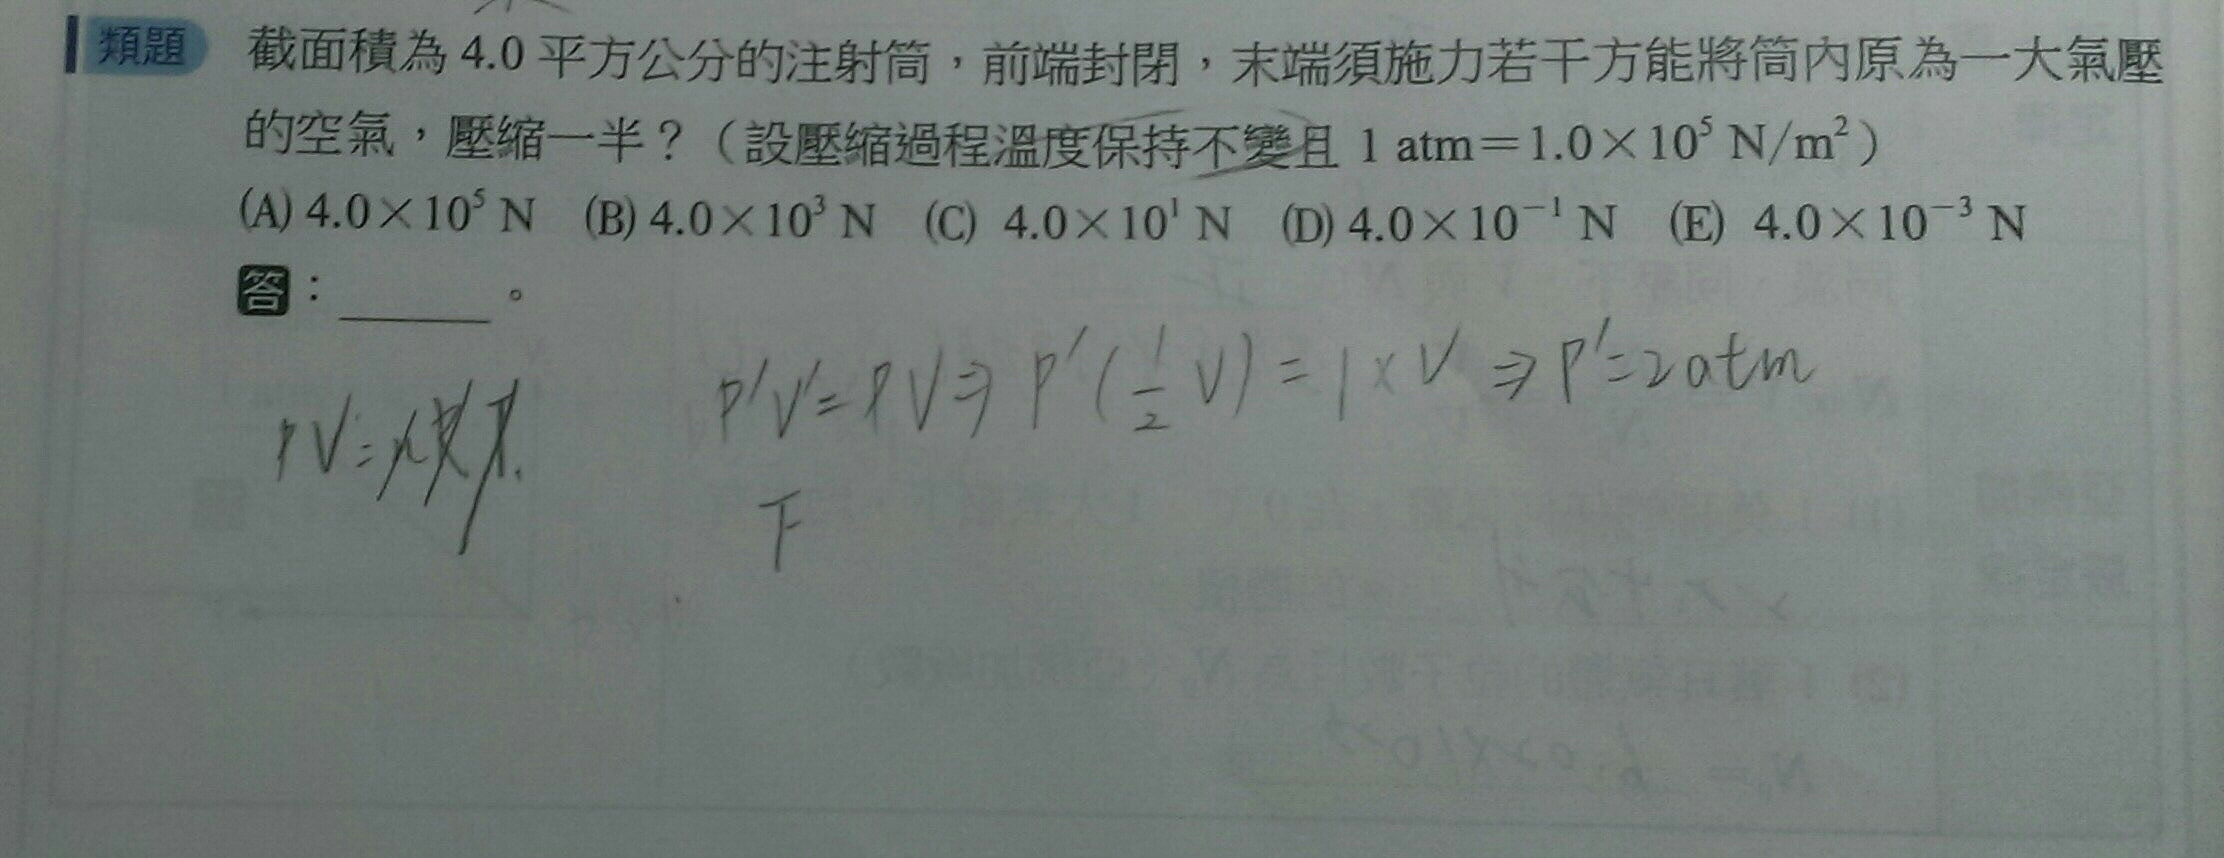 類題 截面積為 4.0 平方公分的注射筒，前端封閉，末端須施力若干方能將筒內原為一大氣壓
的空氣，壓縮一半？（設壓縮過程溫度保持不變且 1 atm＝1.0×10⁵ N/m²）
(A) 4.0×10⁵ N (B) 4.0×10³ N (C) 4.0×10¹ N (D) 4.0×10⁻¹ N (E) 4.0×10⁻³ N
答：______。
P'V'=PV⇒P'(1/2 V)=1×V⇒P'=2atm
PV=
F